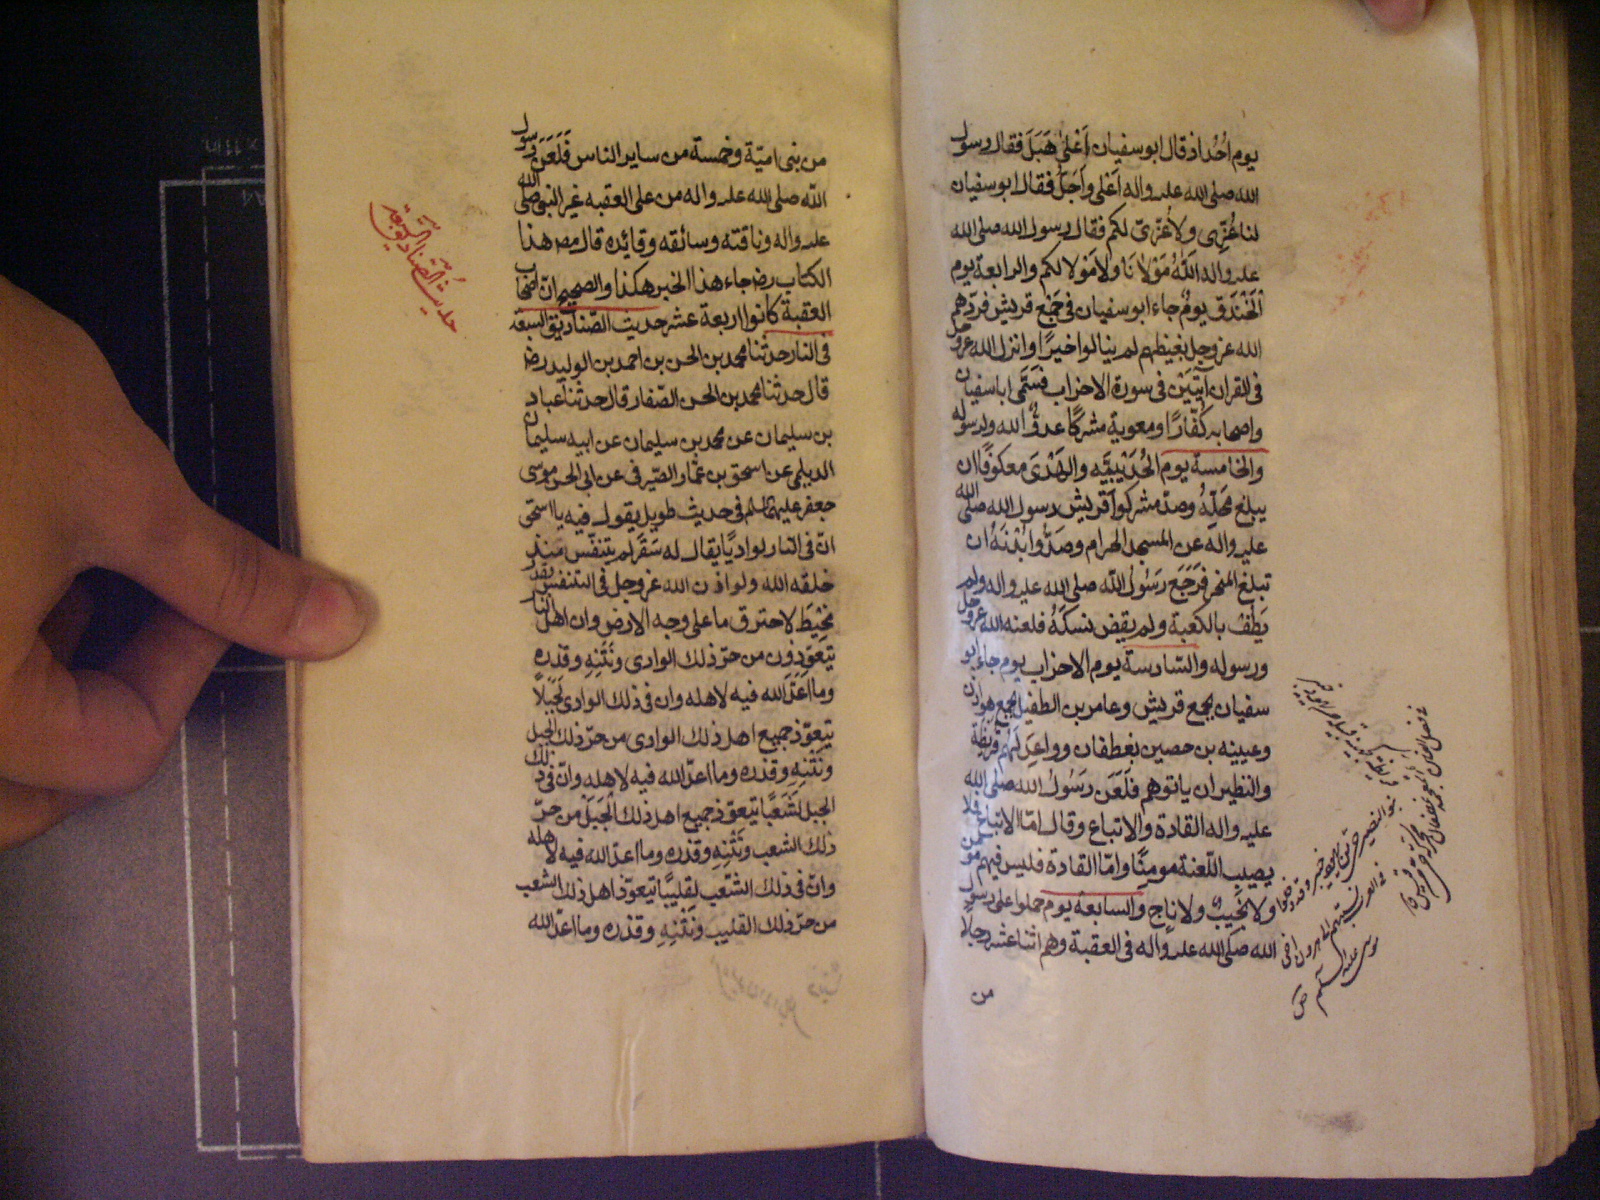 يوم اُحُد اذ قال ابو سفيان اَعْلَى هَبَل فقال رسول
الله صلى الله عليه واله اَعْلى وَاَجَلّ فقال ابو سفيان
لنا عُزّى ولا عُزّى لكم فقال رسول الله صلى الله
عليه واله اَللّٰهُ مَوْلانا ولا مَوْلا لكم والرابعة يوم
اَلْخَنْدَق يومُ جاء ابو سفيان فى جَمْع قريش فردّهم
الله عز وجل بغيظهم لم ينالوا خيرًا وانزل الله عز وجل
فى القران آيَتَيْن فى سورة الاحزاب فسَمّى ابا سفيان
واصحابه كُفّارًا ومعوية مشركًا عدوٌّ الله ولرسوله
والخامسة يوم الحُدَيْبِيَّه والهَدْىَ معكوفًا ان
يبلغ مَحَلّهُ وصدّ مشركوا قريش رسول الله صلى الله
عليه واله عن المسجد الحرام وصَدُّوا بُدْنَهُ ان
تبلغ المنحر فرَجَع رَسُولُ اللّه صلى الله عليه واله ولم
يَطُفْ بالكعبة ولم يقض نسكَهُ فلعنه الله عز وجل
ورسوله والسّادسة يوم الاحزاب يوم جاء ابو
سفيان بجمع قريش وعامر بن الطفيل بجمع هوازن
وعيينه بن حصين بغطفان وواعد لهُم قريظة
والنظير ان ياتوهم فلَعَن رَسُولُ اللّه صلى الله
عليه واله القادة والاتباع وقال امّا الاتباع فلا
يصيب اللّعنة مومنًا وامّا القادة فليس فيهم مومن
ولا نجيبٌ ولا ناجٍ والسّابعة يوم حملوا على رسول
الله صلّى الله عليه واله فى العقبة وهم اثنا عشر رجلًا
من
من بنى اميّة وخمسة من ساير الناس فَلَعَن رسول
اللّه صلى الله عليه واله من على العقبه غير النبى صلى الله
عليه واله وناقته وسائقه وقائده قال مص هذا
الكتاب رضه جاء هذا الخبر هكذا والصحيح انّ اصحاب
العقبة كانوا اربعة عشر حديث الصّناديق السبعة
فى النار حدثنا محمد بن الحسن بن احمد بن الوليد رضه
قال حدثنا محمد بن الحسن الصّفار قال حدثنا عباد
بن سليمان عن محمد بن سليمان عن ابيه سليمان
الديلمى عن اسحق بن عمّار الصّيرفى عن ابى الحسن موسى
جعفر عليهما السلم فى حديث طويل يقول فيه يا اسحق
انّ فى النار لواديًا يقال له سَقَر لم يتنفّس منذ
خلقه الله ولو اذن الله عز وجل فى التنفس بقدر
مِخْيَطَ لاحترق ما على وجه الارض وان اهل النار
يَتعَوّذون من حرّ ذلك الوادى ونَتَنِهِ وقذره
وما اَعَدَّ الله فيه لاهله وان فى ذلك الوادى لجَبلًا
يتعوّذ جميع اهل ذلك الوادى من حرّ ذلك الجبل
ونَتْنِهِ وقذره وما اعدّ الله فيه لاهله وانّ فى ذلك
الجبل لَشعْبًا يتعوّذ جميع اهل ذلك الجَبَل من حرّ
ذلك الشعب ونَتْنِهِ وقذره وما اعدّ الله فيه لاهله
وانّ فى ذلك الشّعب لقليبًا يتعوّذ اهل ذلك الشعب
من حرّ ذلك القليب ونَتْنِهِ وقذره وما اعدّ الله
حديثُ الصّناديق السّبعة